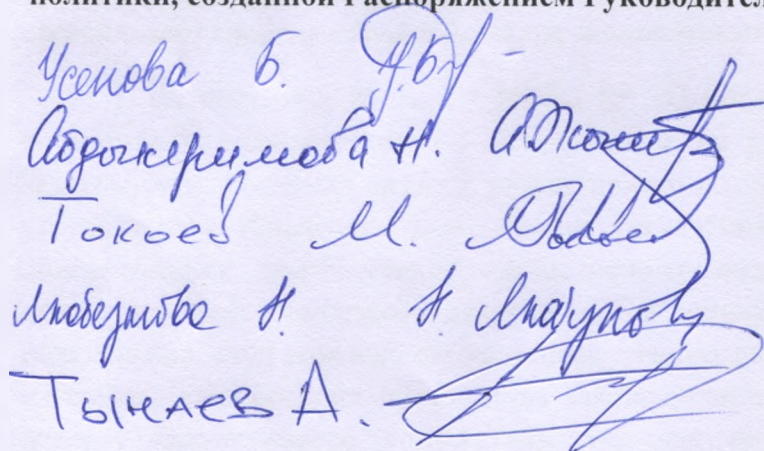 политики, созданной Распоряжением Руководител
Усенова Б.
Абдыкеримова Н.
Токоев М.
Любезнова Н. Н.
Тынаев А.